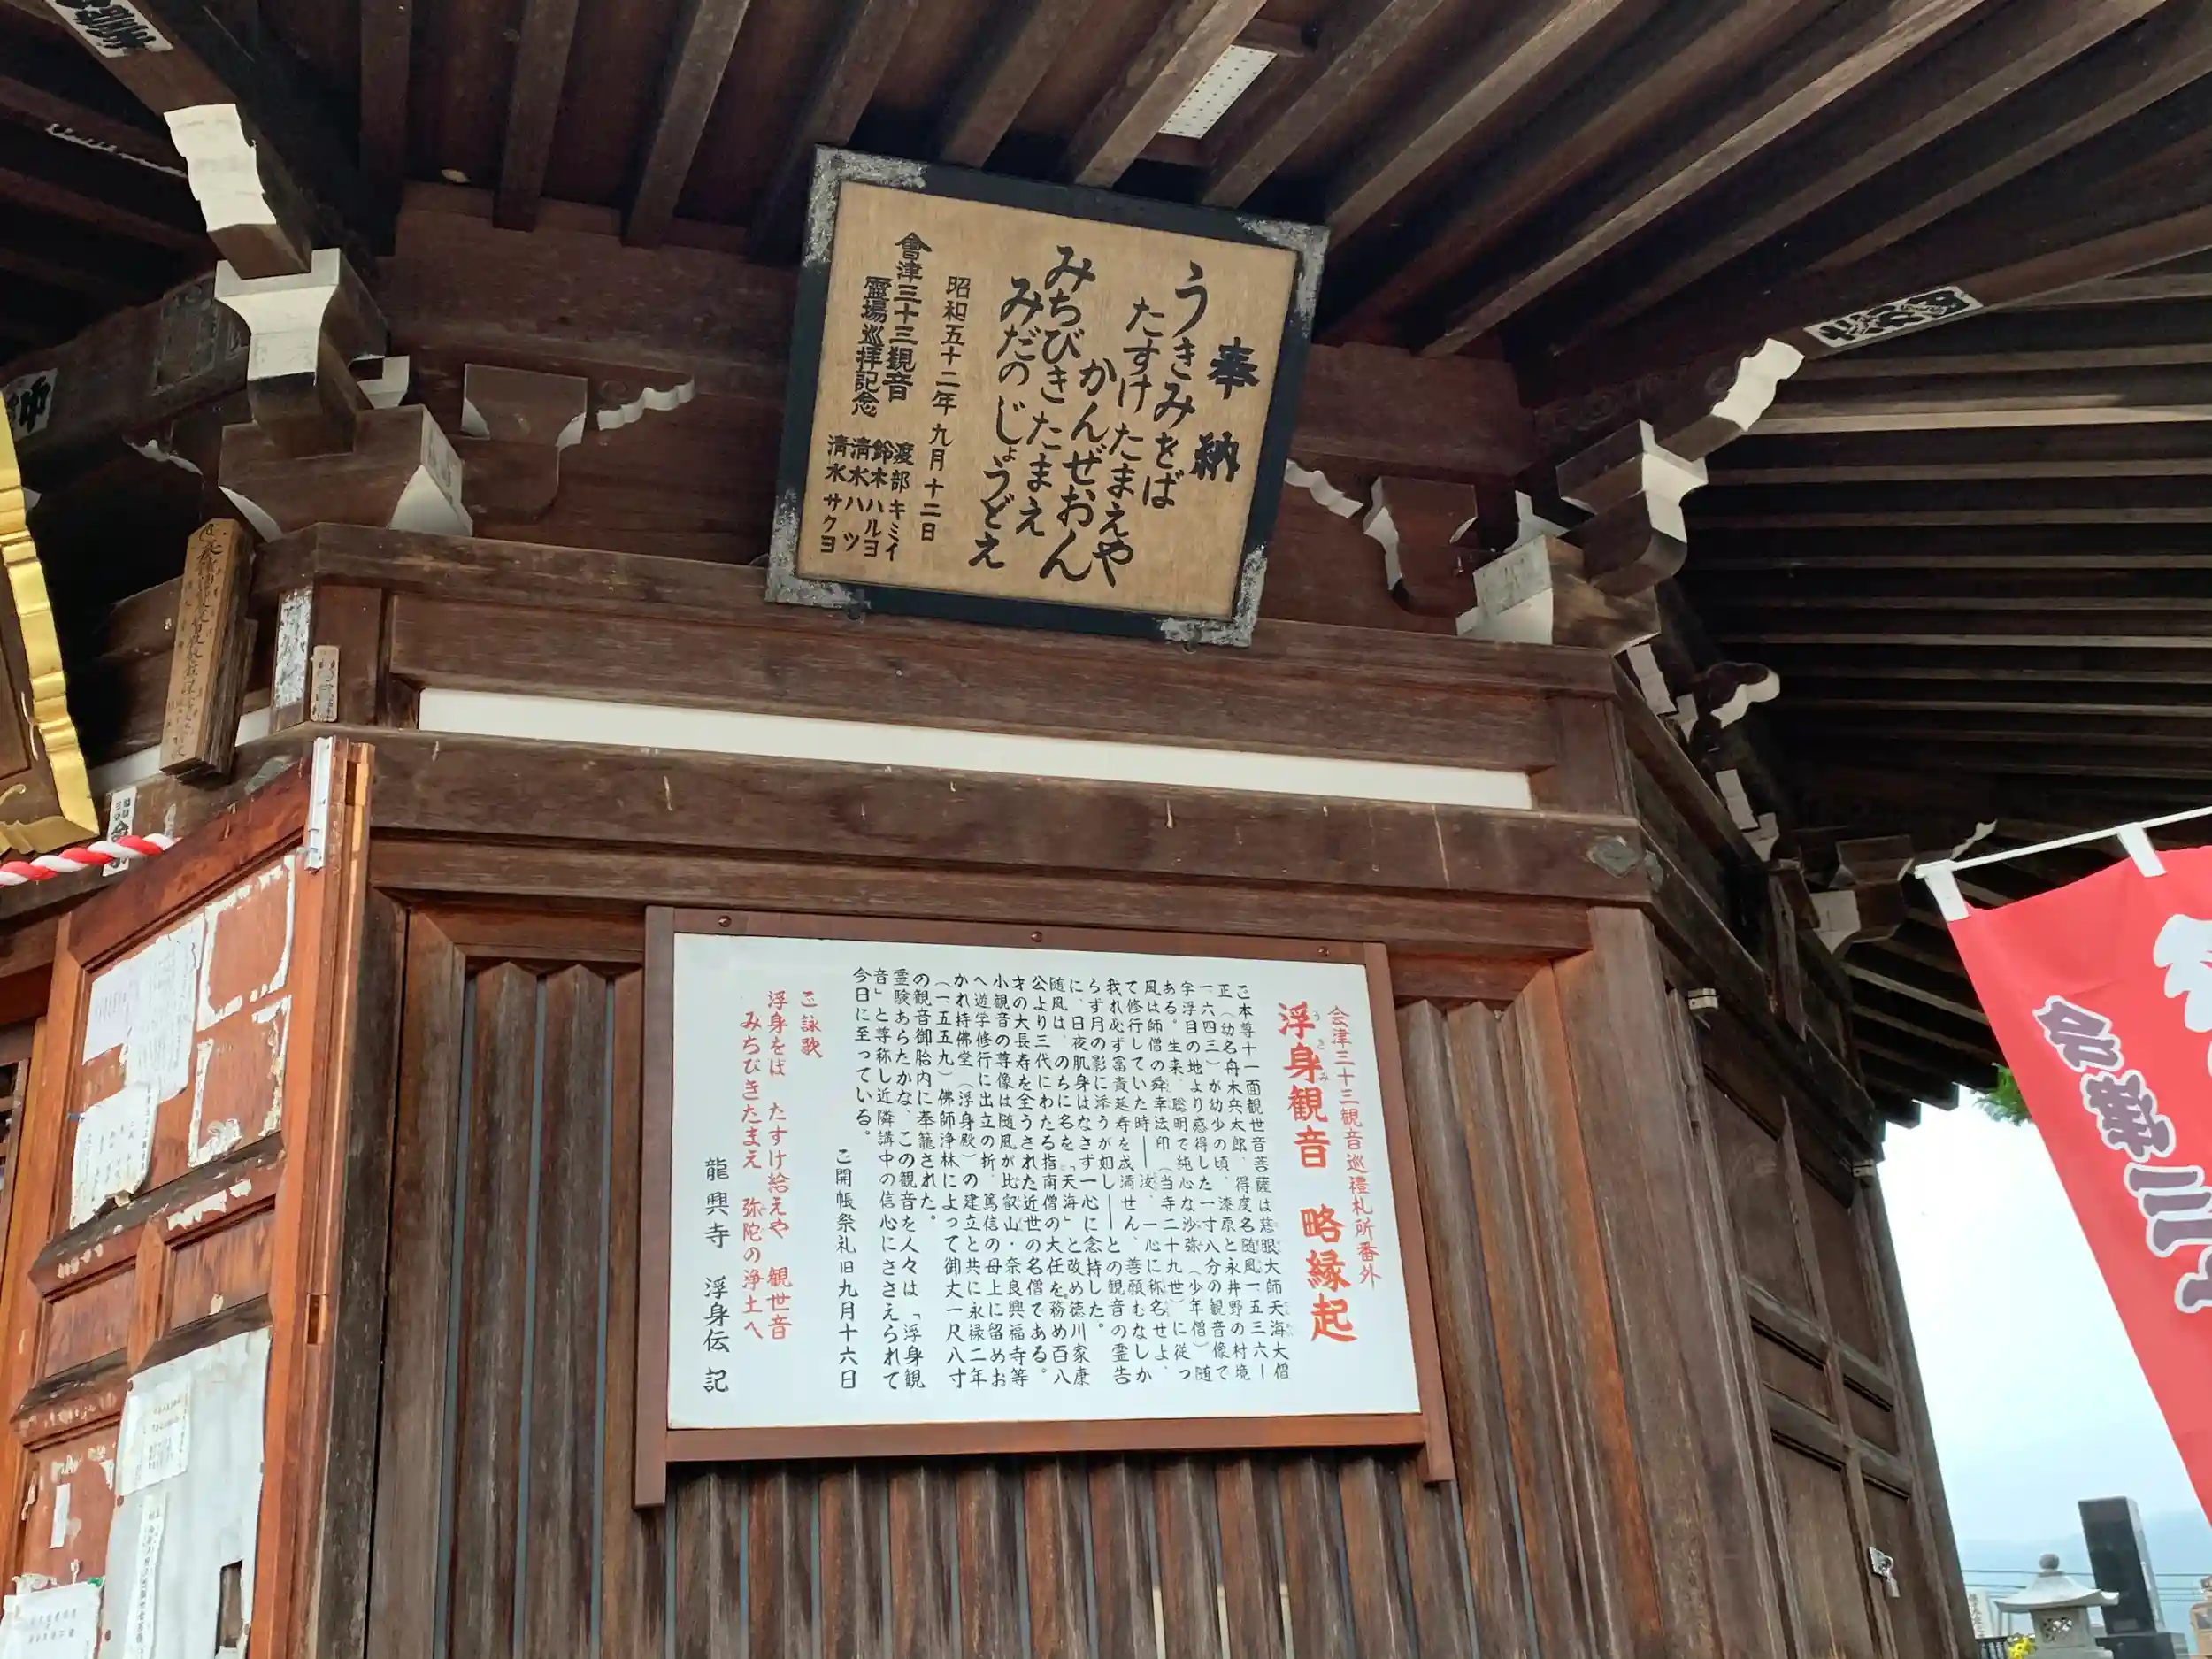 奉納
うきみをば
たすけたまえや
かんぜおん
みちびきたまえ
みだのじょうどえ
昭和五十二年九月十二日
會津三十三観音
霊場巡拝記念
渡部キミイ
鈴木ハルヨ
清水ハツ
清水サクヨ
会津三十三観音巡禮札所番外
浮身観音 略縁起
ご本尊十一面観世音菩薩は慈眼大師天海大僧
正(幼名舟木兵太郎、得度名随風一五三六ー
一六四三)が幼少の頃、漆原と永井野の村境
字浮目の地より感得した一寸八分の観音像で
ある。生来、聡明で純心な沙弥(少年僧)随
風は師僧の舜幸法印(当寺二十九世)に従っ
て修行していた時──汝、一心に称名せよ、
我れ必ず富貴延寿を成満せん、善願むなしか
らず月の影に添うが如し──との観音の霊告
に、日夜肌身はなさず一心に念持した。
随風は、のちに名を「天海」と改め徳川家康
公より三代にわたる指南僧の大任を務め百八
才の大長寿を全うされた近世の名僧である。
小観音の尊像は随風が比叡山・奈良興福寺等
へ遊学修行に出立の折、篤信の母上に留めお
かれ持佛堂(浮身殿)の建立と共に永禄二年
(一五五九)佛師浄林によって御丈一尺八寸
の観音御胎内に奉籠された。
霊験あらたかな、この観音を人々は、「浮身観
音」と尊称し近隣講中の信心にささえられて
今日に至っている。
ご開帳祭礼旧九月十六日
ご詠歌
浮身をば たすけ給えや 観世音
みちびきたまえ 弥陀の浄土へ
龍興寺 浮身伝 記
会津三十